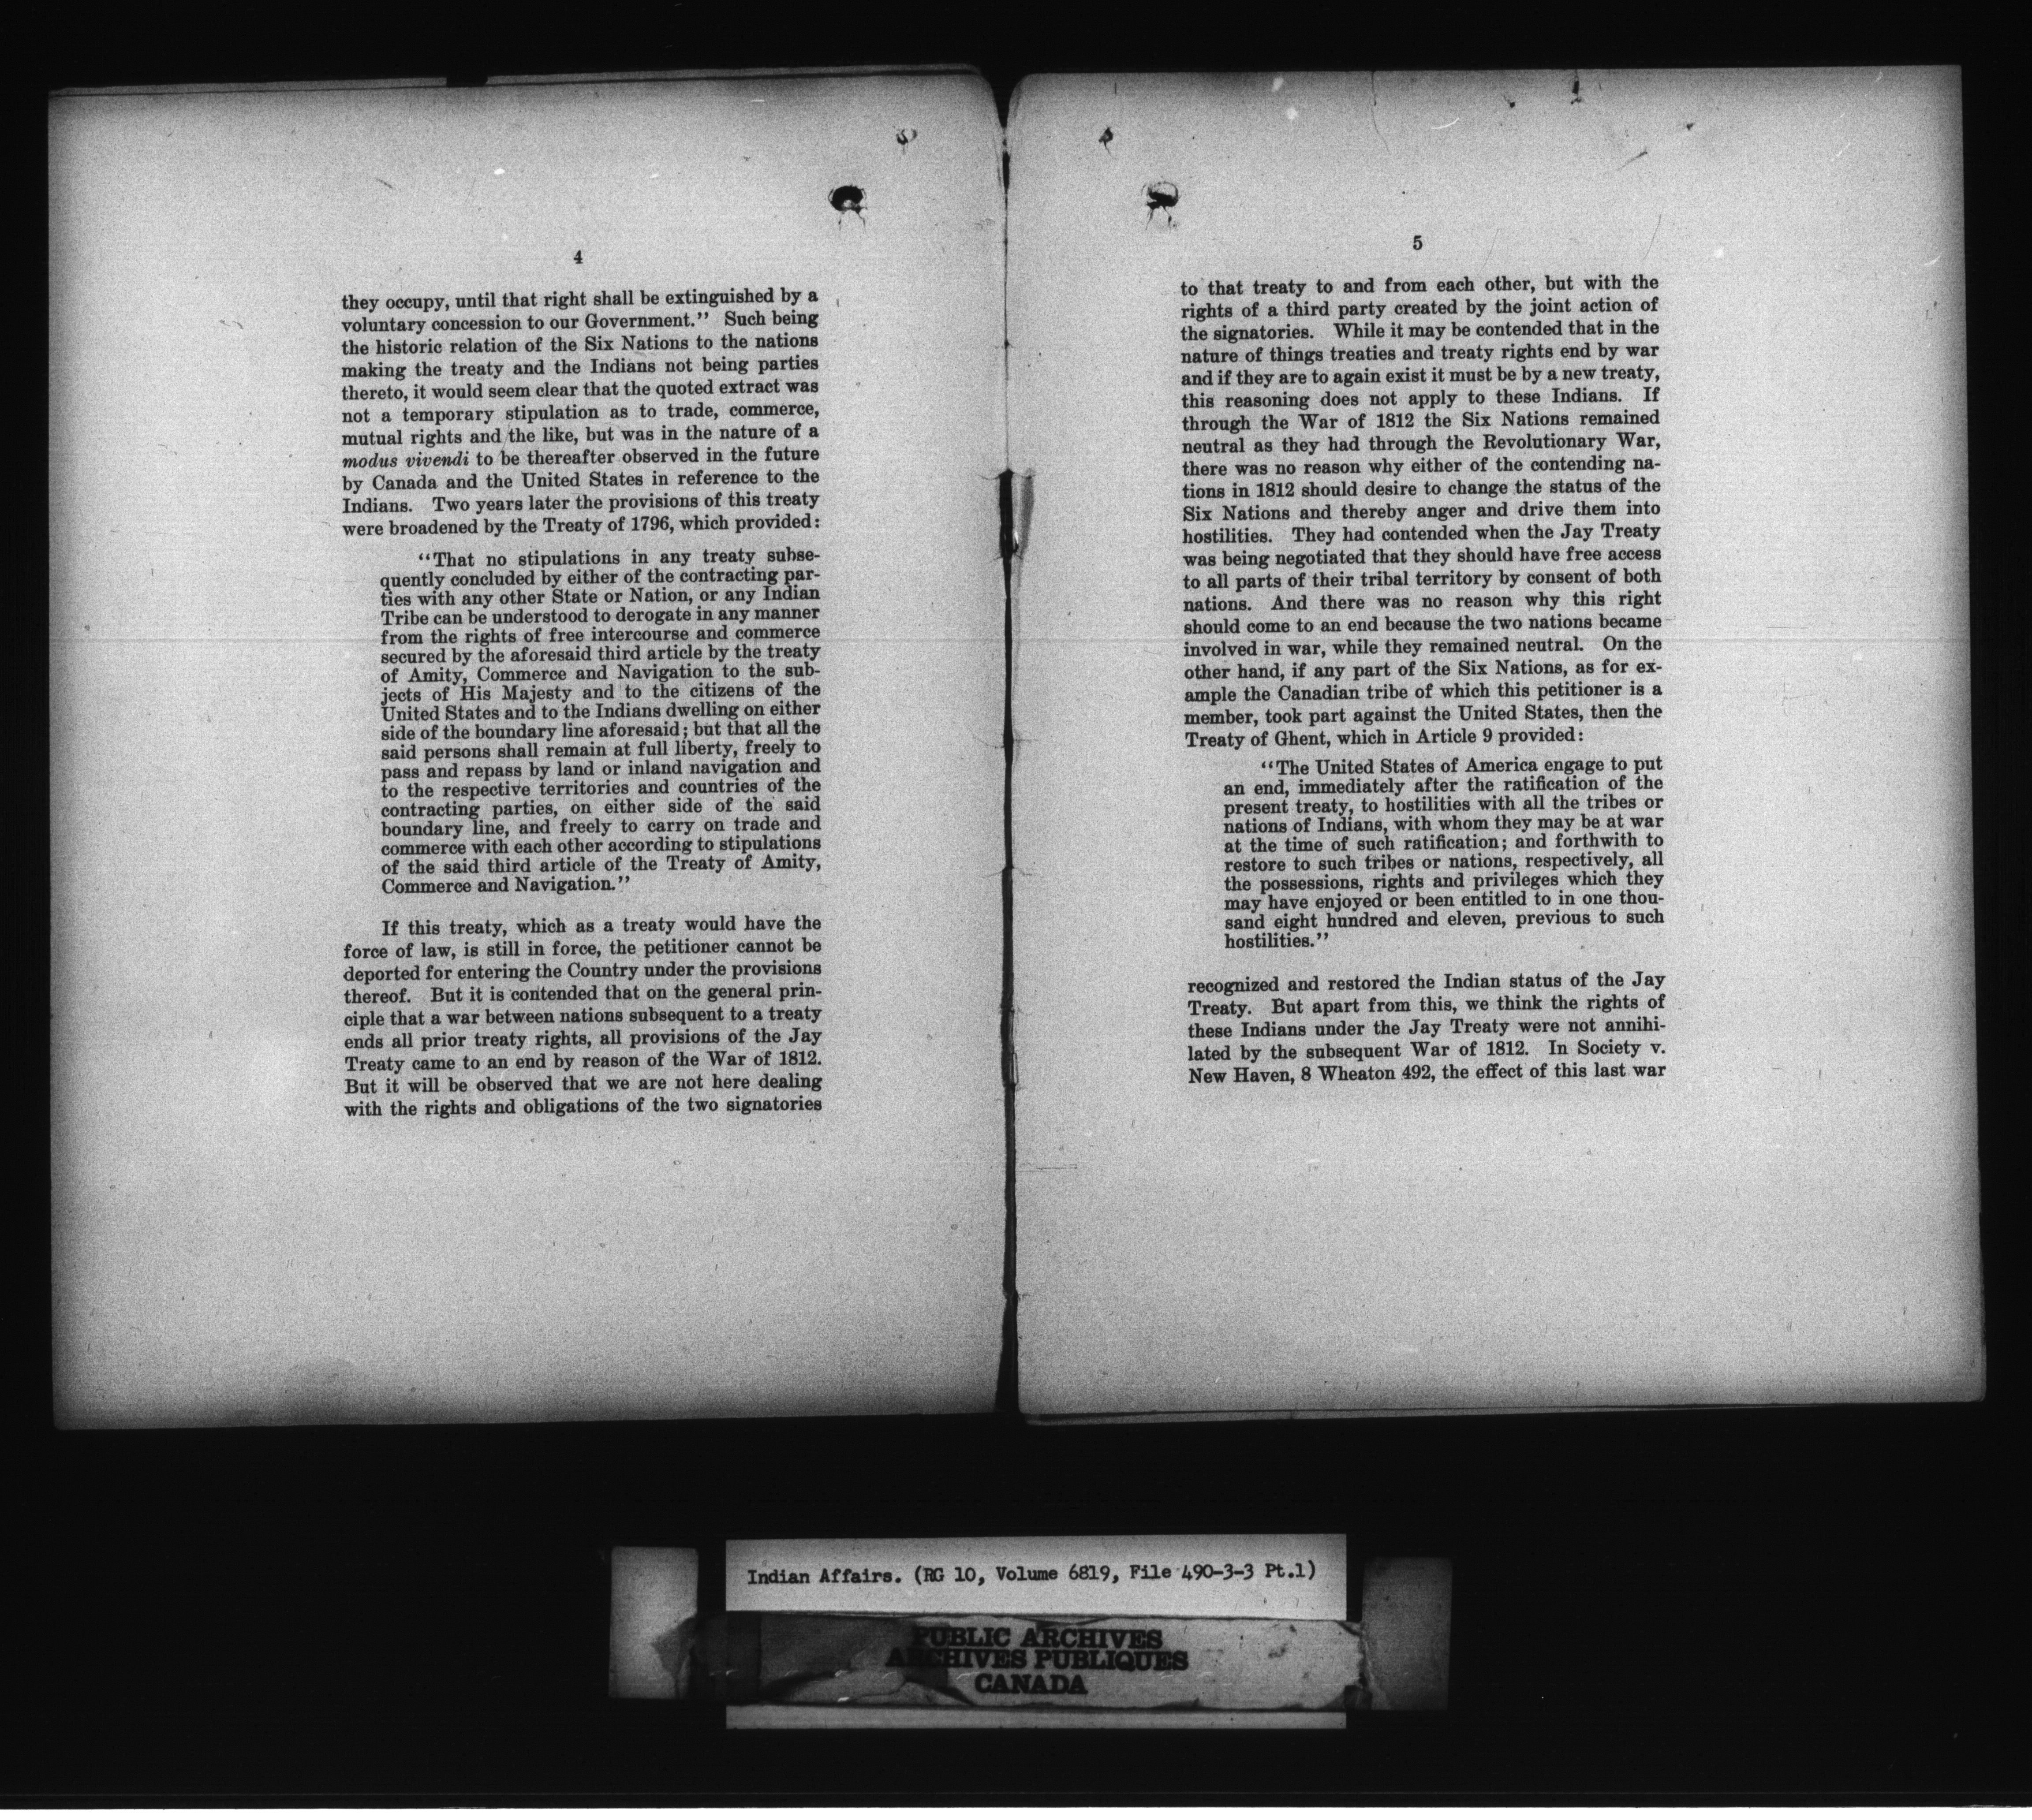 4
they occupy, until that right shall be extinguished by a
voluntary concession to our Government." Such being
the historic relation of the Six Nations to the nations
making the treaty and the Indians not being parties
thereto, it would seem clear that the quoted extract was
not a temporary stipulation as to trade, commerce,
mutual rights and the like, but was in the nature of a
modus vivendi to be thereafter observed in the future
by Canada and the United States in reference to the
Indians. Two years later the provisions of this treaty
were broadened by the Treaty of 1796, which provided:
"That no stipulations in any treaty subse-
quently concluded by either of the contracting par-
ties with any other State or Nation, or any Indian
Tribe can be understood to derogate in any manner
from the rights of free intercourse and commerce
secured by the aforesaid third article by the treaty
of Amity, Commerce and Navigation to the sub-
jects of His Majesty and to the citizens of the
United States and to the Indians dwelling on either
side of the boundary line aforesaid; but that all the
said persons shall remain at full liberty, freely to
pass and repass by land or inland navigation and
to the respective territories and countries of the
contracting parties, on either side of the said
boundary line, and freely to carry on trade and
commerce with each other according to stipulations
of the said third article of the Treaty of Amity,
Commerce and Navigation."
If this treaty, which as a treaty would have the
force of law, is still in force, the petitioner cannot be
deported for entering the Country under the provisions
thereof. But it is contended that on the general prin-
ciple that a war between nations subsequent to a treaty
ends all prior treaty rights, all provisions of the Jay
Treaty came to an end by reason of the War of 1812.
But it will be observed that we are not here dealing
with the rights and obligations of the two signatories
5
to that treaty to and from each other, but with the
rights of a third party created by the joint action of
the signatories. While it may be contended that in the
nature of things treaties and treaty rights end by war
and if they are to again exist it must be by a new treaty,
this reasoning does not apply to these Indians. If
through the War of 1812 the Six Nations remained
neutral as they had through the Revolutionary War,
there was no reason why either of the contending na-
tions in 1812 should desire to change the status of the
Six Nations and thereby anger and drive them into
hostilities. They had contended when the Jay Treaty
was being negotiated that they should have free access
to all parts of their tribal territory by consent of both
nations. And there was no reason why this right
should come to an end because the two nations became
involved in war, while they remained neutral. On the
other hand, if any part of the Six Nations, as for ex-
ample the Canadian tribe of which this petitioner is a
member, took part against the United States, then the
Treaty of Ghent, which in Article 9 provided:
"The United States of America engage to put
an end, immediately after the ratification of the
present treaty, to hostilities with all the tribes or
nations of Indians, with whom they may be at war
at the time of such ratification; and forthwith to
restore to such tribes or nations, respectively, all
the possessions, rights and privileges which they
may have enjoyed or been entitled to in one thou-
sand eight hundred and eleven, previous to such
hostilities."
recognized and restored the Indian status of the Jay
Treaty. But apart from this, we think the rights of
these Indians under the Jay Treaty were not annihi-
lated by the subsequent War of 1812. In Society v.
New Haven, 8 Wheaton 492, the effect of this last war
Indian Affairs. (RG 10, Volume 6819, File 490-3-3 Pt.1)
PUBLIC ARCHIVES
ARCHIVES PUBLIQUES
CANADA